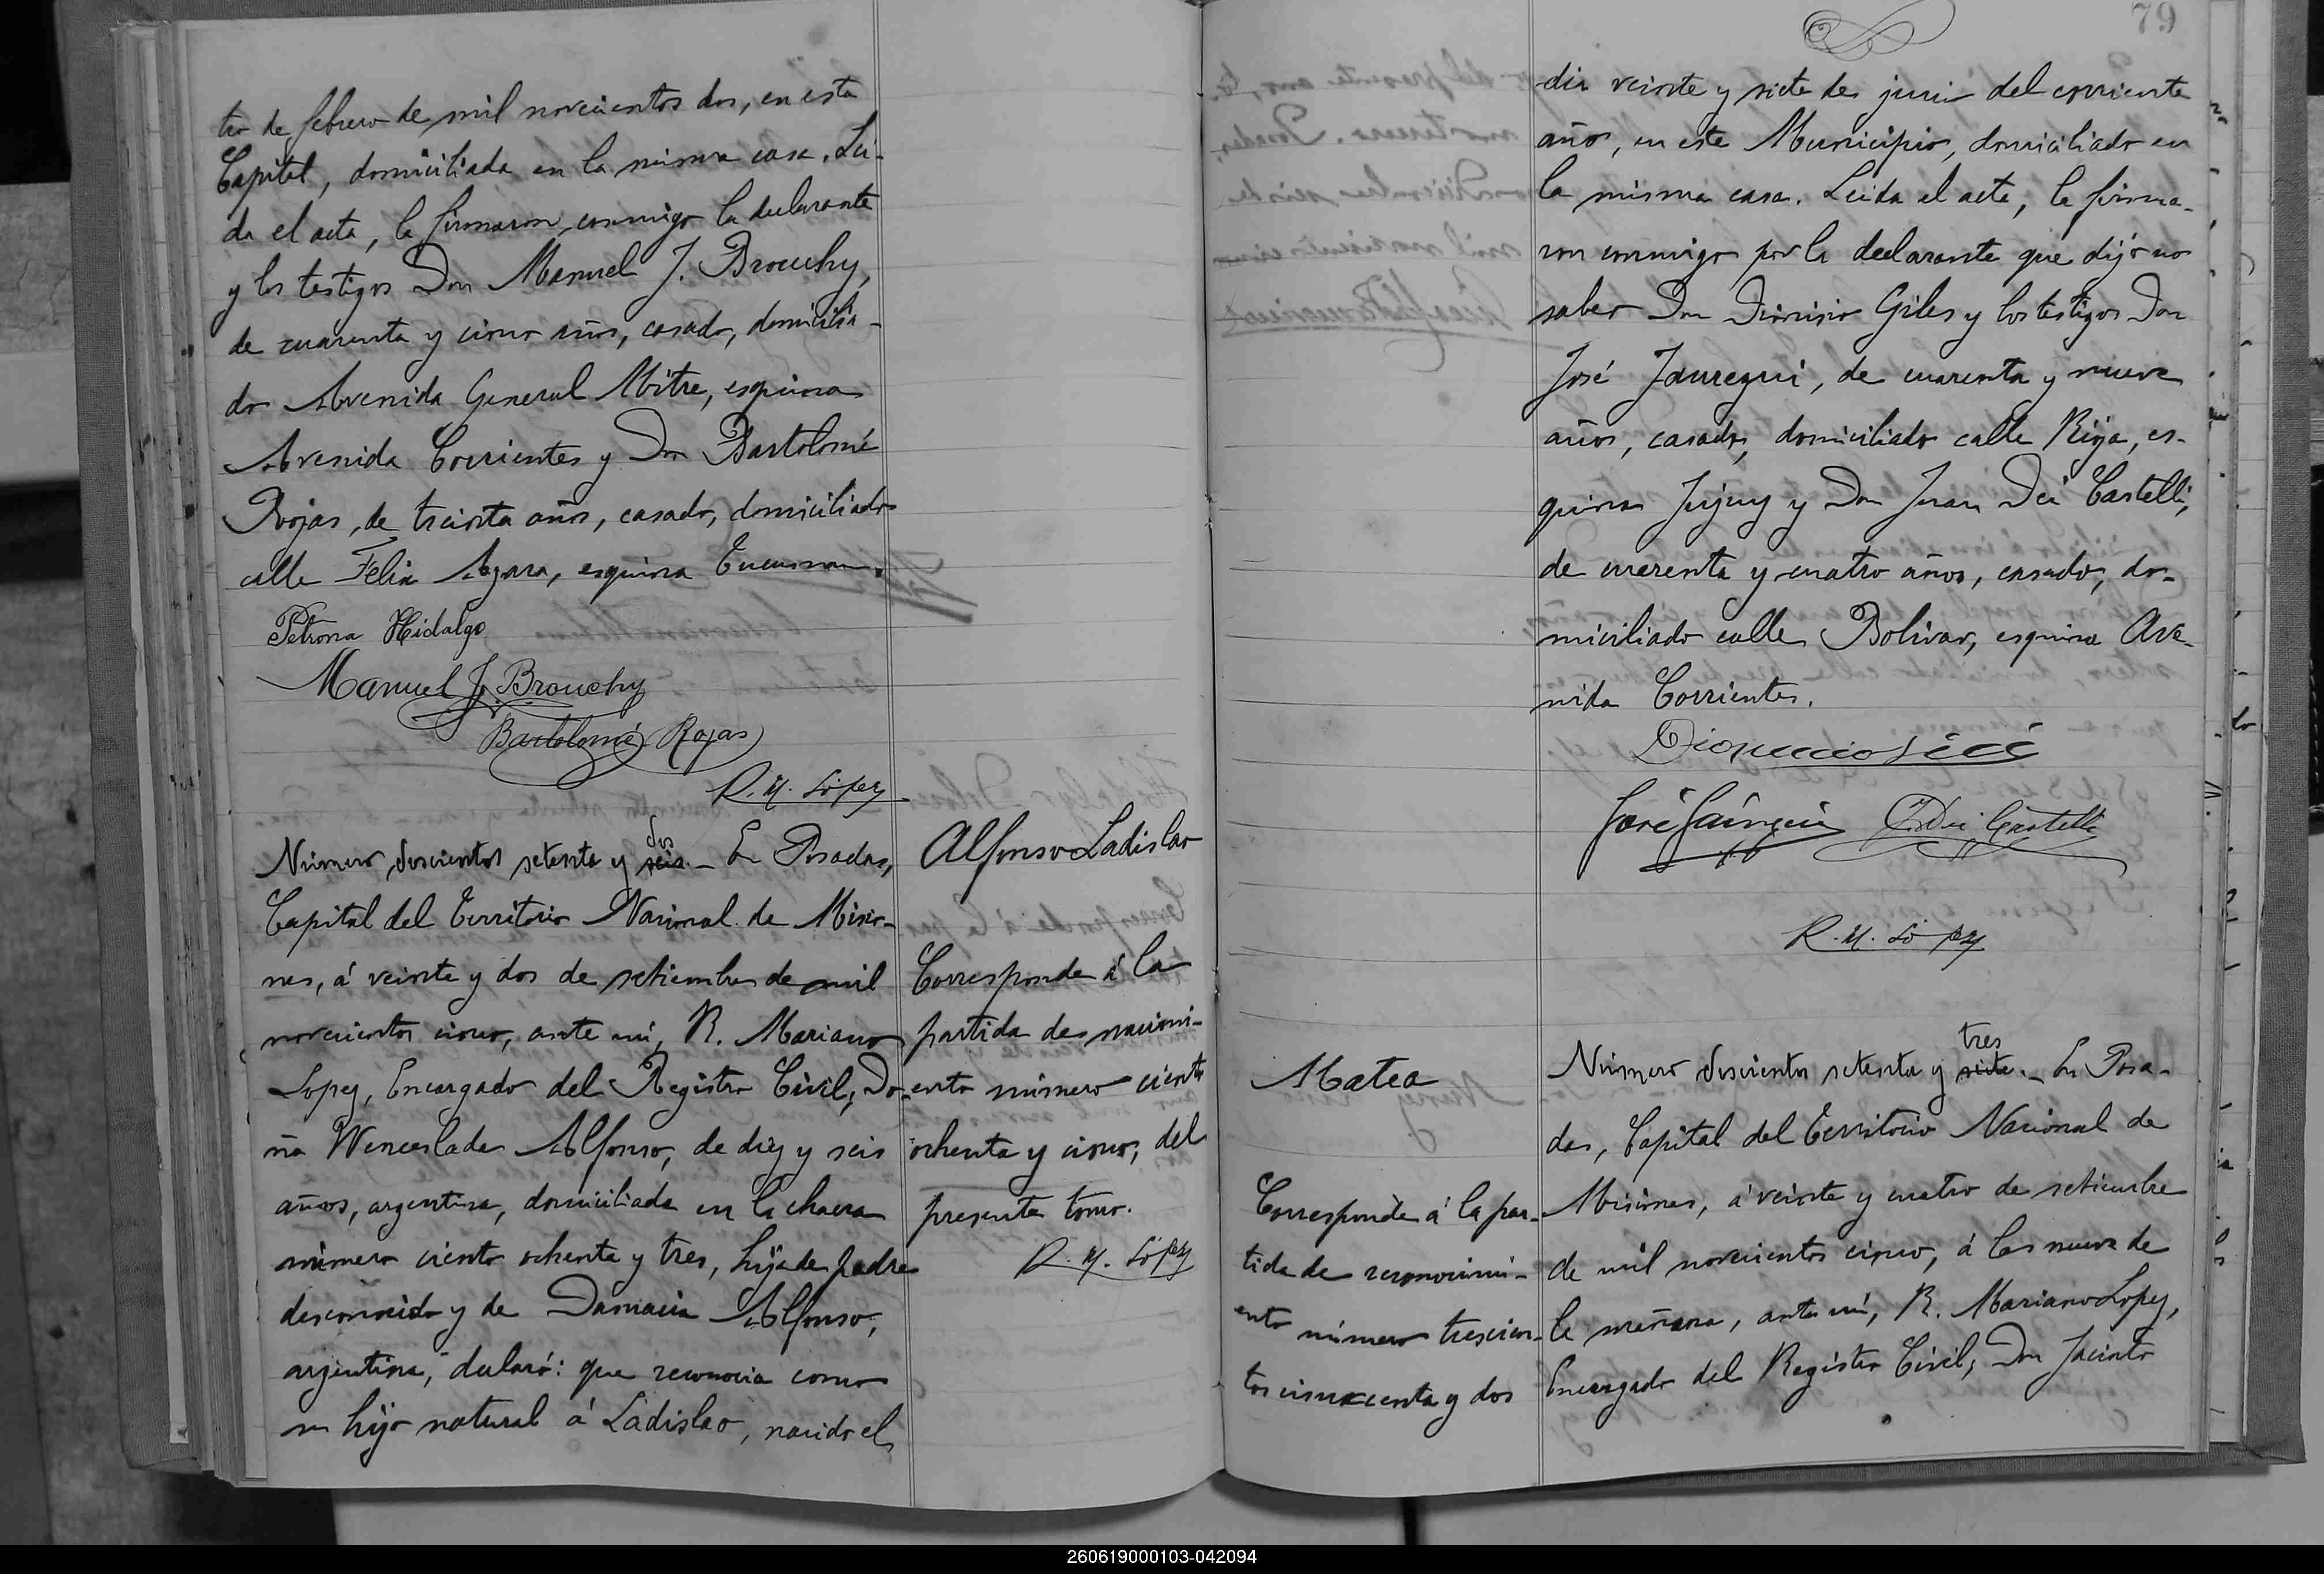 tro de febrero de mil novecientos dos, en esta
Capital, domiciliada en la misma casa. Lei-
da el acta, la firmaron conmigo la declarante
y los testigos Don Manuel J. Brouchy,
de cuarenta y cinco años, casado, domicilia-
do Avenida General Mitre, esquina
Avenida Corrientes y Don Bartolomé
Rojas, de treinta años, casado, domiciliado
calle Felix Azara, esquina Tucuman.
Petrona Hidalgo
Manuel J. Brouchy
Bartolomé Rojas
R. M. López
Número doscientos setenta y seis dos.- En Posadas,
Capital del Territorio Nacional de Misio-
nes, á veinte y dos de setiembre de mil
novecientos cinco, ante mi, R. Mariano
Lopez, Encargado del Registro Civil, Do-
ña Wenceslada Alfonso, de diez y seis
años, argentina, domiciliada en la chacra
número ciento ochenta y tres, hija de padre
desconocido y de Damacia Alfonso,
argentina, declaró: que reconocia como
su hijo natural á Ladislao, nacido el
Alfonso Ladislao
Corresponde á la
partida de nacimi-
ento número ciento
ochenta y cinco, del
presente tomo.
R. M. López
79
dia veinte y siete de junio del corriente
año, en este Municipio, domiciliado en
la misma casa. Leida el acta, la firma-
ron conmigo por la declarante que dijo no
saber Don Dionisio Giles y los testigos Don
José Jauregui, de cuarenta y nueve
años, casado, domiciliado calle Rioja, es-
quina Jujuy y Don Juan Dei Castelli,
de cuarenta y cuatro años, casado, do-
miciliado calle Bolivar, esquina Ave-
nida Corrientes.
José Jáuregui
J. Dei Castelli
R. M. López
Matea
Corresponde á la par-
tida de reconocimi-
ento número trescien-
tos cincuenta y dos
Número doscientos setenta y siete tres.- En Posa-
das, Capital del Territorio Nacional de
Misiones, á veinte y cuatro de setiembre
de mil novecientos cinco, á las nueve de
la mañana, ante mi, R. Mariano Lopez,
Encargado del Registro Civil, Don Jacinto
260619000103-042094